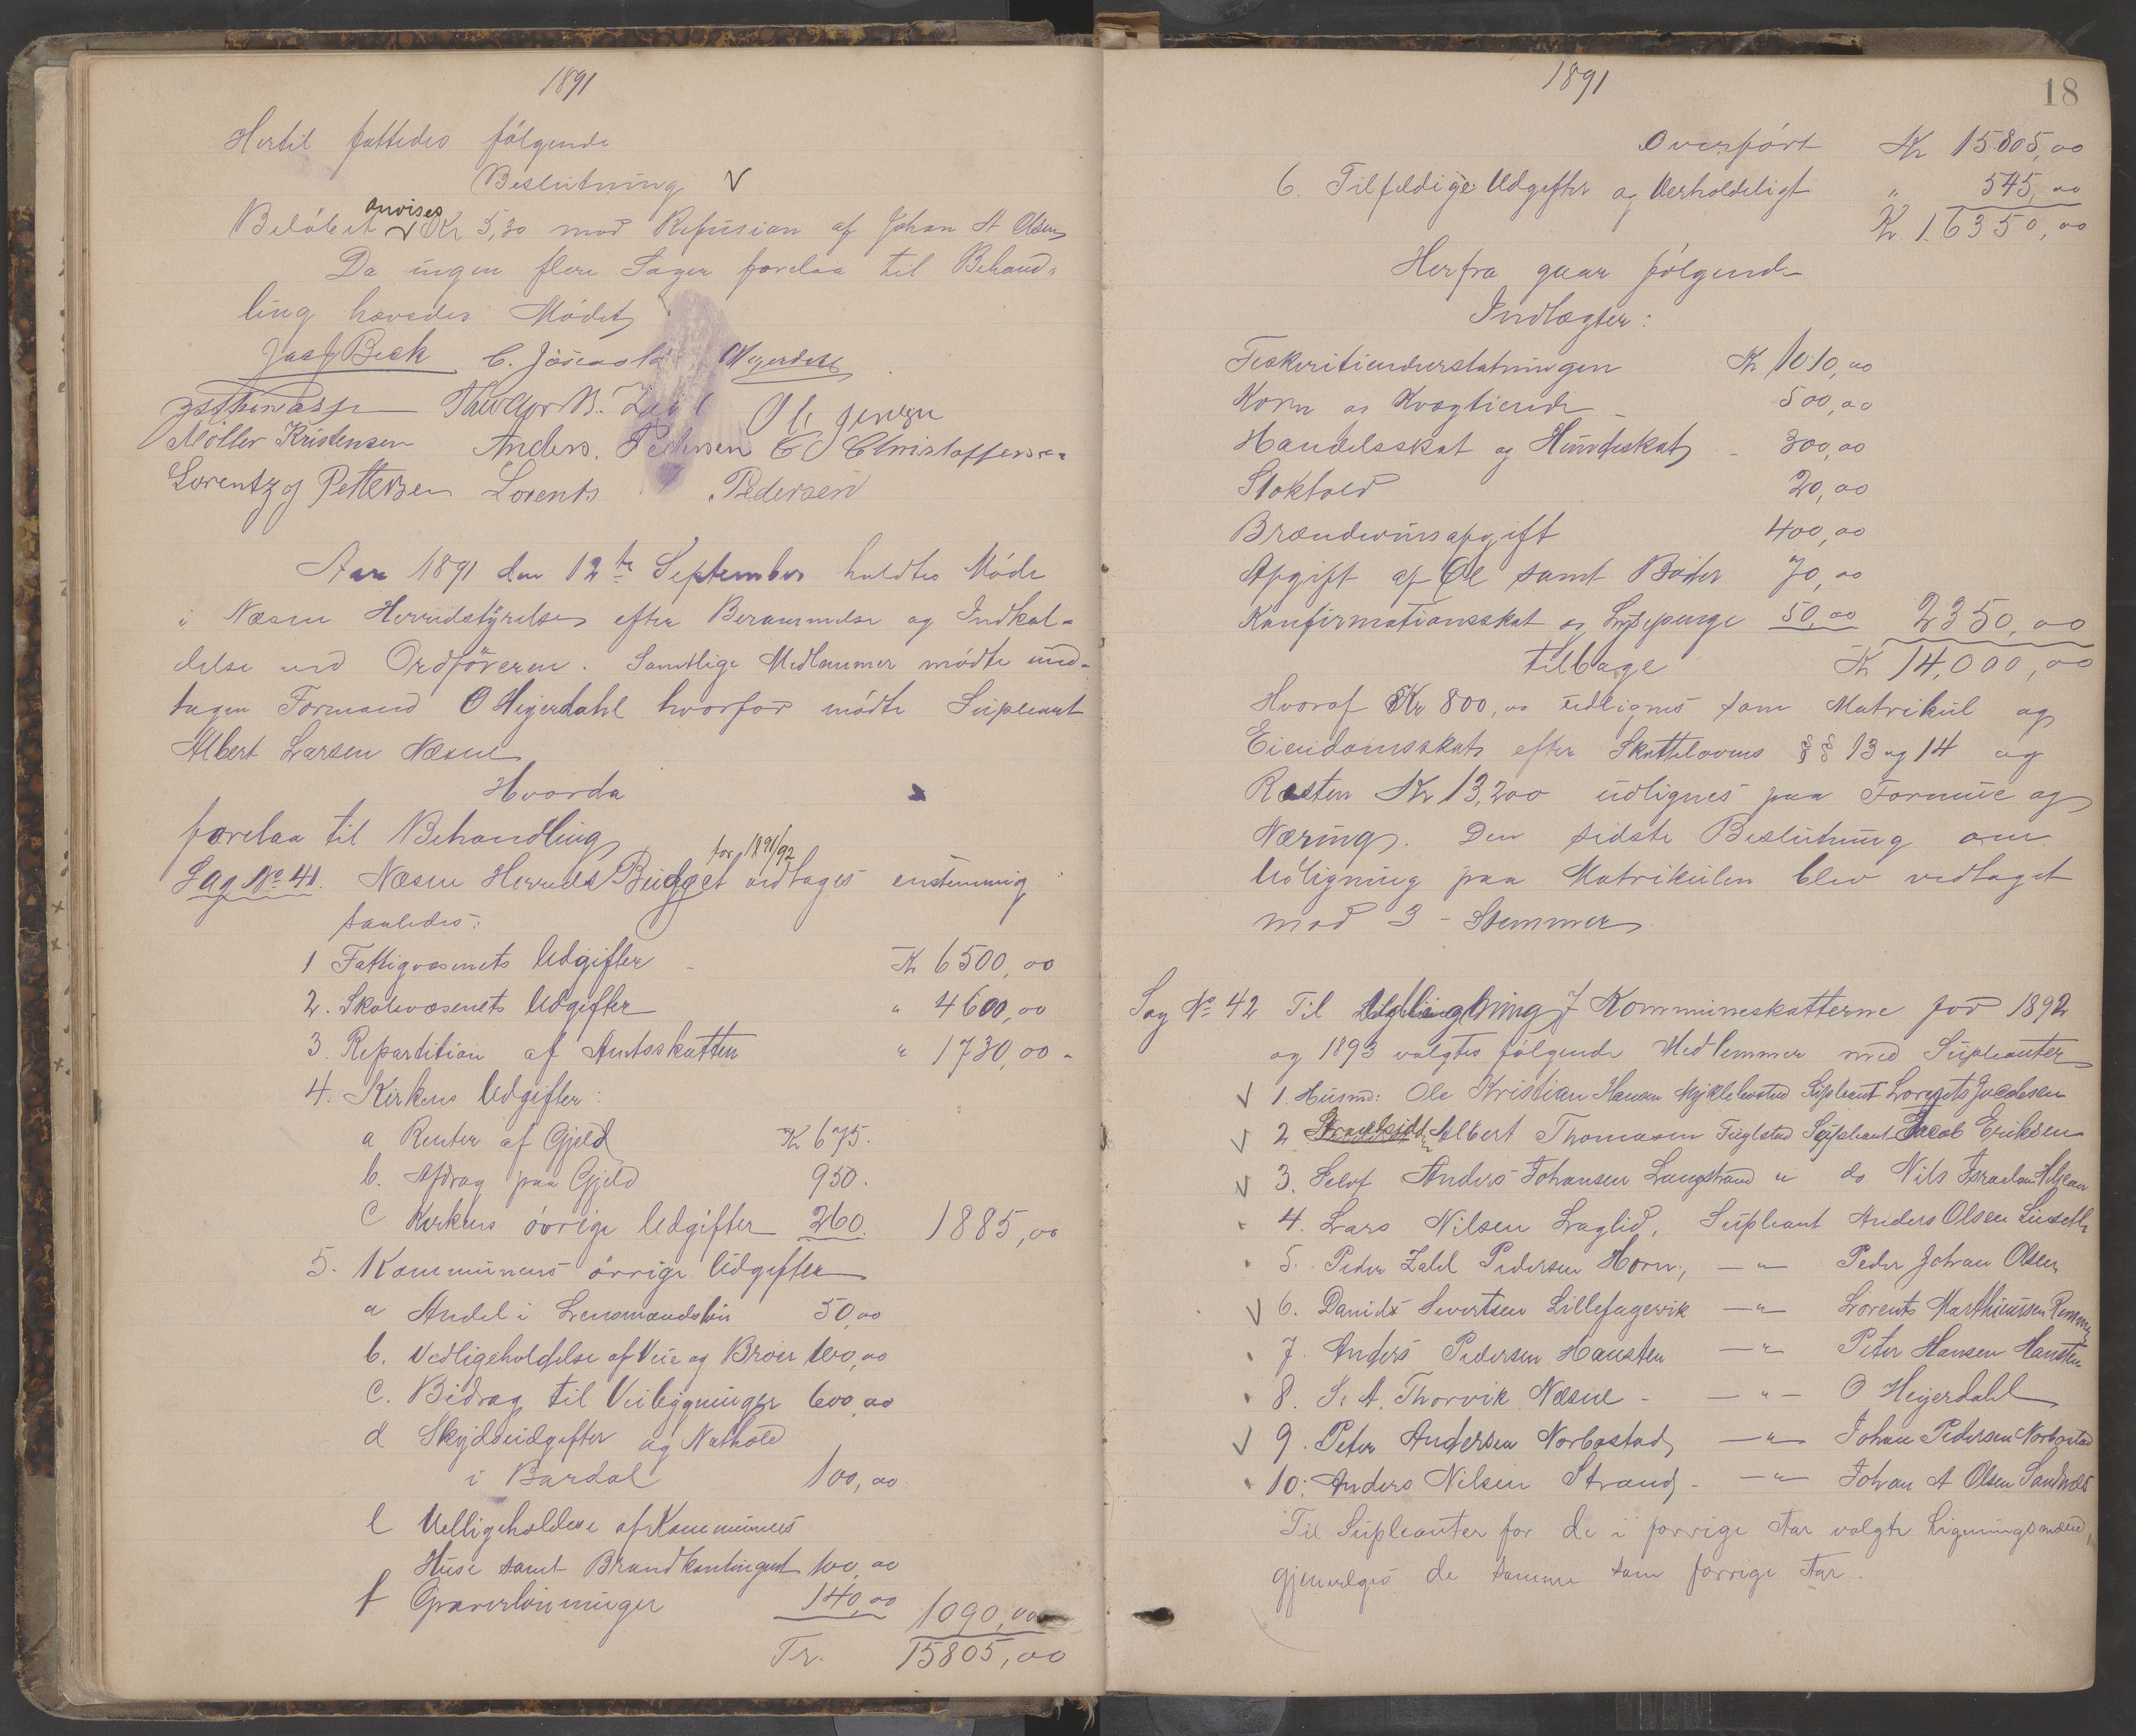 1891
Hertil fattedes følgende
Beslutning
Beløbet anvises Kr 5,30 mod Refusion af Johan A Olsen
Da ingen flere Sager forelaa til Behand-
ling hævedes Mødet
Beck C. Heyerdahl
Theodor B. Zahl Ole Jensen
Møller Kristensen Anders Pedersen C Christoffersen
Lorentz Pettersen Lorents Pedersen
Aar 1891 den 12te September holdtes Møde
i Næsne Herredstyrelse efter Berammelse og Indkal-
delse ved Ordføreren. Samtlige Medlemmer mødte und-
tagen Formand O Heyerdahl hvorfor mødte Supleant
Albert Larsen Næsne
Hvorda
forelaa til Behandling
Sag No 41. Næsne Herreds Budget for 1891/92 vedtages enstemmig
saaledes:
1 Fattigvæsenets Udgifter Kr 6500,00
2. Skolevæsenets Udgifter " 4600,00
3. Repartition af Amtsskatten " 1730,00
4. Kirkens Udgifter:
a Renter af Gjeld Kr 675.
b. Afdrag paa Gjeld 950.
c Kirkens øvrige Udgifter 260. 1885,00
5. Kommunens øvrige Udgifter
a Andel i Lensmandsløn 50,00
b. Vedligeholdelse af Veie og Broer 100,00
c. Bidrag til Veibygninger 600,00
d Skydsudgifter og Nathold
i Bardal 100,00
e Vedligeholdelse af Kommunens
Huse samt Brandkontingent 100,00
f Graverlønninger 140,00 1090,00
Tr. 15805,00
1891
18
Overført Kr 15805,00
6. Tilfeldige Udgifter og Uerholdeligt " 545,00
Kr 16350,00
Herfra gaar følgende
Indtægter:
Feskeritiendeerstatningen Kr 1010,00
Korn og Kvægtiende 500,00
Handelsskat og Hundeskat 300,00
Stoktold 20,00
Brændevinsafgift 400,00
Afgift af Øl samt Bøder 70,00
Konfirmationsskat og Lysepenge 50,00 2350,00
tilbage Kr 14,000,00
Hvoraf Kr 800,00 udlignes som Matrikul og
Eiendomsskat efter Skattelovens §§ 13 og 14 og
Resten Kr 13,200 udlignes paa Formue og
Næring. Den sidste Beslutning om
Udligning paa Matrikulen blev vedtaget
mod 3 - Stemmer
Sag No 42 Til Udligning af Kommuneskatterne for 1892
og 1893 valgtes følgende Medlemmer med Supleanter
1. Husmd: Ole Kristian Hansen Myklebostad Supleant Lorents Jacobsen
2 Albert Thomasen Fuglstad Supleant Jacob Eriksen
3. Selvf Anders Johansen Langstrand " do Nils
4. Lars Nilsen Laglid, Supleant Anders Olsen
5. Peder Zahl Pedersen Horn, — " Peder Johan Olsen
6. Danidt Sivertsen Lillefagervik — " Lorents
7. Anders Pedersen Hansten — " Peter Hansen Hansten
8. S. A. Thorvik Næsne - — " — O Heyerdahl
9. Peter Andersen Norbostad — " Johan Pedersen Norbostad
10. Anders Nilsen Strand - — " Johan A Olsen Sandnæs
Til Supleanter for de i forrige Aar valgte Ligningsmænd
gjenvælges de samme som forrige Aar.